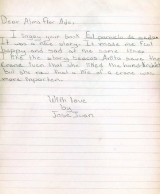 Dear Alma Flor Ada,
I enjoy your book El pañuelo de
It was a nice story. It made me feel
happy and sad at the same time.
I like the story because Anita save the
crane. Even that she liked the handkerchief
but she new that a life of a crane was
more important.
With love
by
José Juan